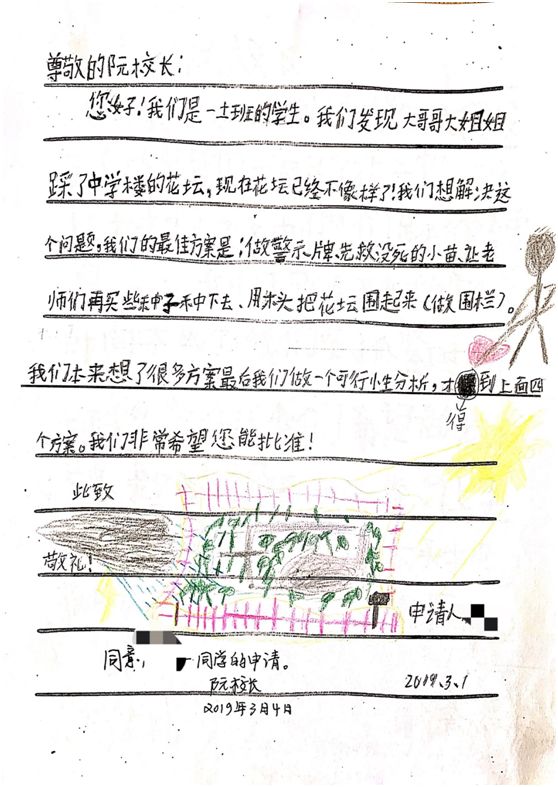 尊敬的阮校长：
您好！我们是一土班的学生。我们发现大哥哥大姐姐
踩了中学楼的花坛，现在花坛已经不像样了！我们想解决这
个问题，我们的最佳方案是：做警示牌、先救没死的小苗、让老
师们再买些种子种下去、用木头把花坛围起来（做围栏）。
我们本来想了很多方案最后我们做一个可行性分析，才得到上面四
个方案。我们非常希望您能批准！
此致
敬礼！
申请人
2019.3.1
同意，同学的申请。
阮校长
2019年3月4日